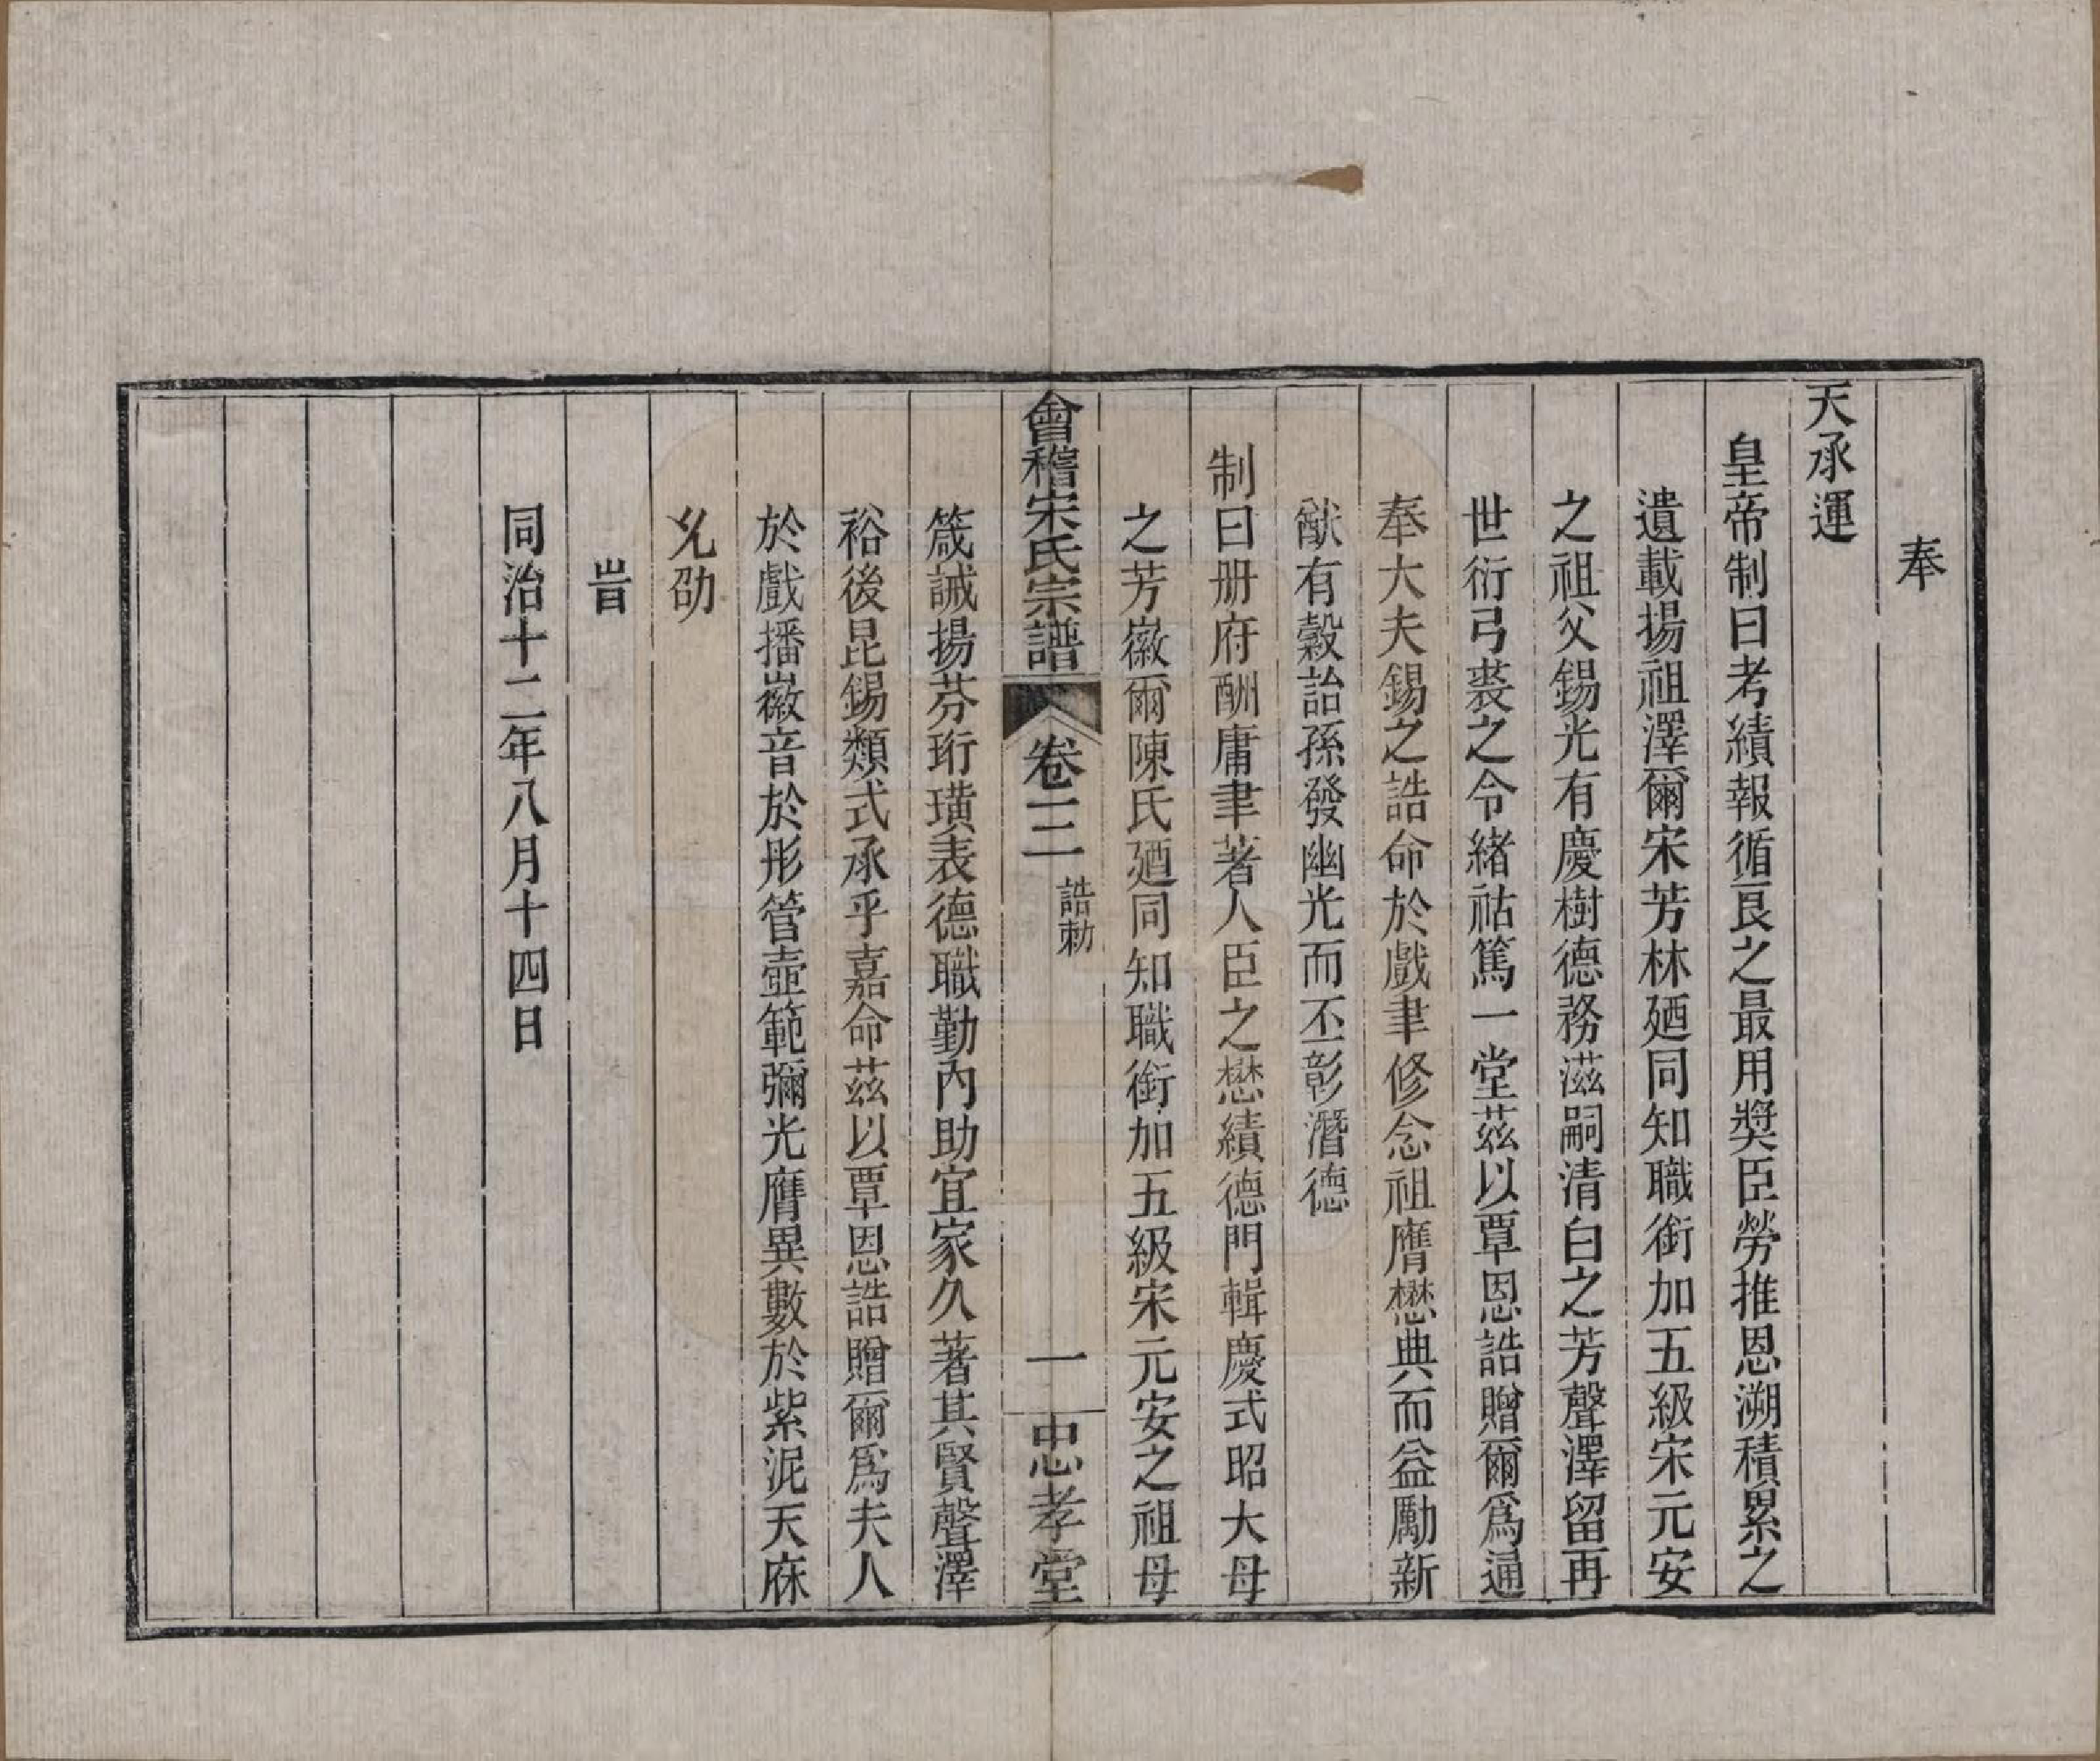 奉
天承運
皇帝制曰考績報循良之最用獎臣勞推恩溯積累之
遺載揚祖澤爾宋芳林廼同知職銜加五級宋元安
之祖父錫光有慶樹德務滋嗣清白之芳聲澤留再
世衍弓裘之令緒祜篤一堂茲以覃恩誥贈爾爲通
奉大夫錫之誥命於戲聿修念祖膺懋典而益勵新
猷有穀詒孫發幽光而丕彰潛德
制曰册府酬庸聿著人臣之懋績德門輯慶式昭大母
之芳徽爾陳氏廼同知職銜加五級宋元安之祖母
會稽宋氏宗譜 卷三 誥勅 一 忠孝堂
箴誡揚芬珩璜表德職勤內助宜家久著其賢聲澤
裕後昆錫類式承乎嘉命茲以覃恩誥贈爾爲夫人
於戲播徽音於彤管壼範彌光膺異數於紫泥天庥
允劭
旹
同治十二年八月十四日